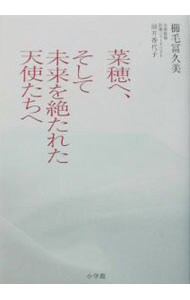 櫛毛冨久美
菜穂へ、
そして
未来を絶たれた
天使たちへ
小学館